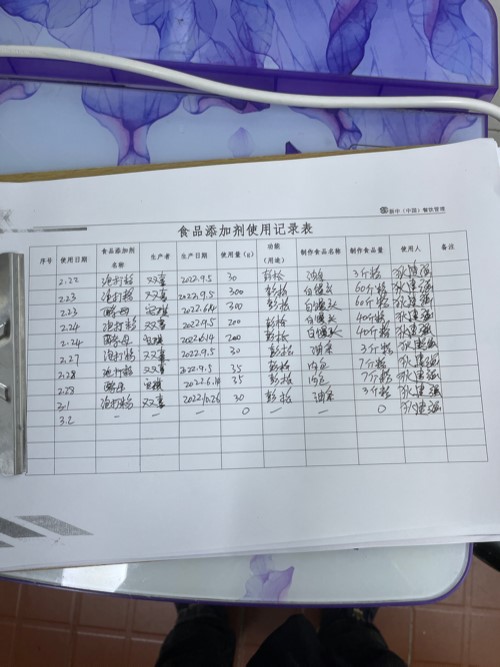 新中（中国）餐饮管理
食品添加剂使用记录表
序号 使用日期 食品添加剂名称 生产者 生产日期 使用量（g） 功能（用途） 制作食品名称 制作食品量 使用人 备注
2.22 泡打粉 双喜 2022.9.5 30 彭松 油条 3斤粉
2.23 泡打粉 双喜 2022.9.5 300 彭松 白馒头 60斤粉
2.23 酵母 2022.6.14 300 彭松 白馒头 60斤粉
2.24 泡打粉 双喜 2022.9.5 200 彭松 白馒头 40斤粉
2.24 酵母 2022.6.14 200 彭松 白馒头 40斤粉
2.27 泡打粉 双喜 2022.9.5 30 彭松 油条 3斤粉
2.28 泡打粉 双喜 2022.9.5 35 彭松 肉包 7斤粉
2.28 酵母 2022.6.14 35 彭松 肉包 7斤粉
3.1 泡打粉 双喜 2022.10.26 30 彭松 油条 3斤粉
3.2 — — — 0 — — 0